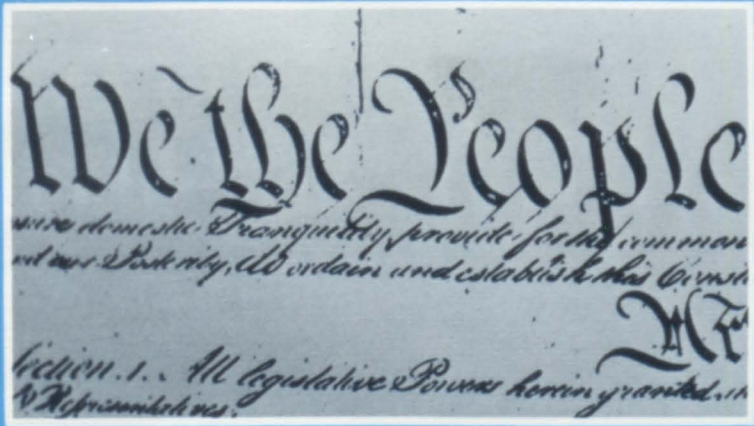 We the People
domestic Tranquility, provide for the common
our Posterity, do ordain and establish this
Section. 1. All legislative Powers herein granted
Representatives.